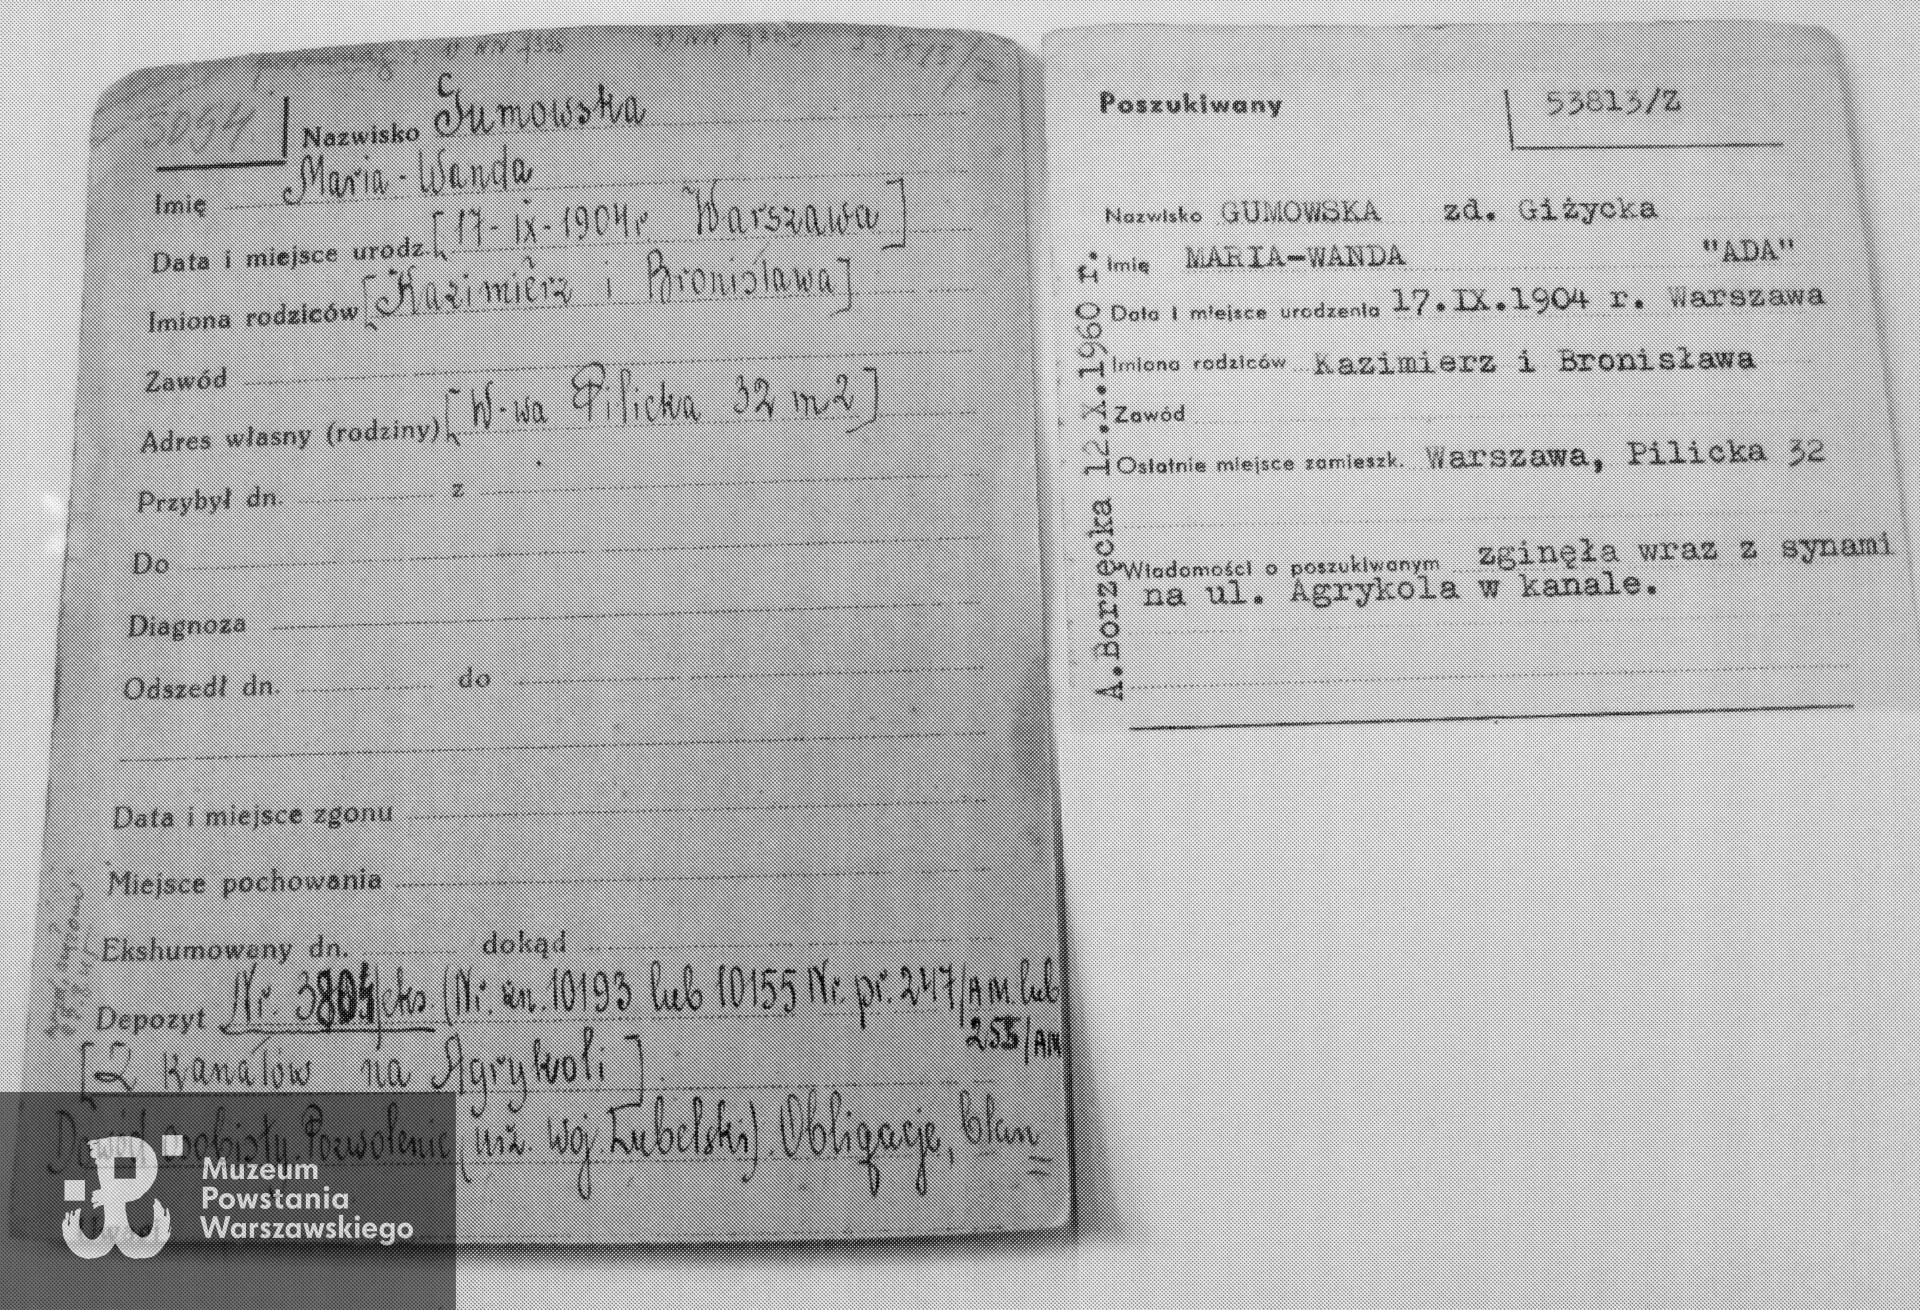 53813/Z
3054.
Nazwisko Gumowska
Imię Maria-Wanda
Data i miejsce urodz. [17-ix-1904r. Warszawa]
Imiona rodziców [Kazimierz i Bronisława]
Zawód
Adres własny (rodziny) [W-wa Pilicka 32 m 2]
Przybył dn. z
Do
Diagnoza
Odszedł dn. do
Data i miejsce zgonu
Miejsce pochowania
Ekshumowany dn. dokąd
Depozyt Nr. 3804/eks (Nr. an. 10193 lub 10155 Nr. pr. 247/AM. lub
255/AM
[2 kanałów na Agrykoli]
Dowód osobisty. Pozwolenie (urz. woj. Lubelski). Obligacje, blan=
Uwagi
Muzeum
Powstania
Warszawskiego
Poszukiwany 53813/Z
Nazwisko GUMOWSKA zd. Giżycka
Imię MARIA-WANDA "ADA"
Data i miejsce urodzenia 17.IX.1904 r. Warszawa
Imiona rodziców Kazimierz i Bronisława
Zawód
Ostatnie miejsce zamieszk. Warszawa, Pilicka 32
Wiadomości o poszukiwanym zginęła wraz z synami
na ul. Agrykola w kanale.
A.Borzęcka 12.X.1960 r.